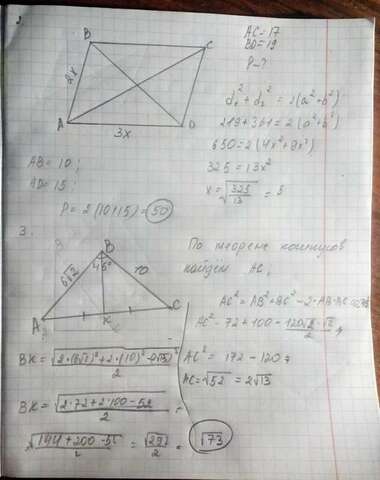 B
C
2x
A
3x
D
AC = 17
BD = 19
P - ?
d₁² + d₂² = 2(a² + b²)
289 + 361 = 2(a² + b²)
650 = 2(4x² + 9x²)
325 = 13x²
x = √(325/13) = 5
AB = 10 ;
AD = 15 ;
P = 2(10+15) = 50
3.
B
6√2
45°
10
A
K
C
По теореме косинусов
найдём AC,
AC² = AB² + BC² - 2·AB·
AC² = 72 + 100 - 120√2·√2/2
AC² = 172 - 120
AC = √52 = 2√13
BK = √(2·(6√2)² + 2·(10)² - (2√13)²)/2
BK = √(2·72 + 2·100 - 52)/2 =
√(144 + 200 - 52)/2 = √292/2 = √73